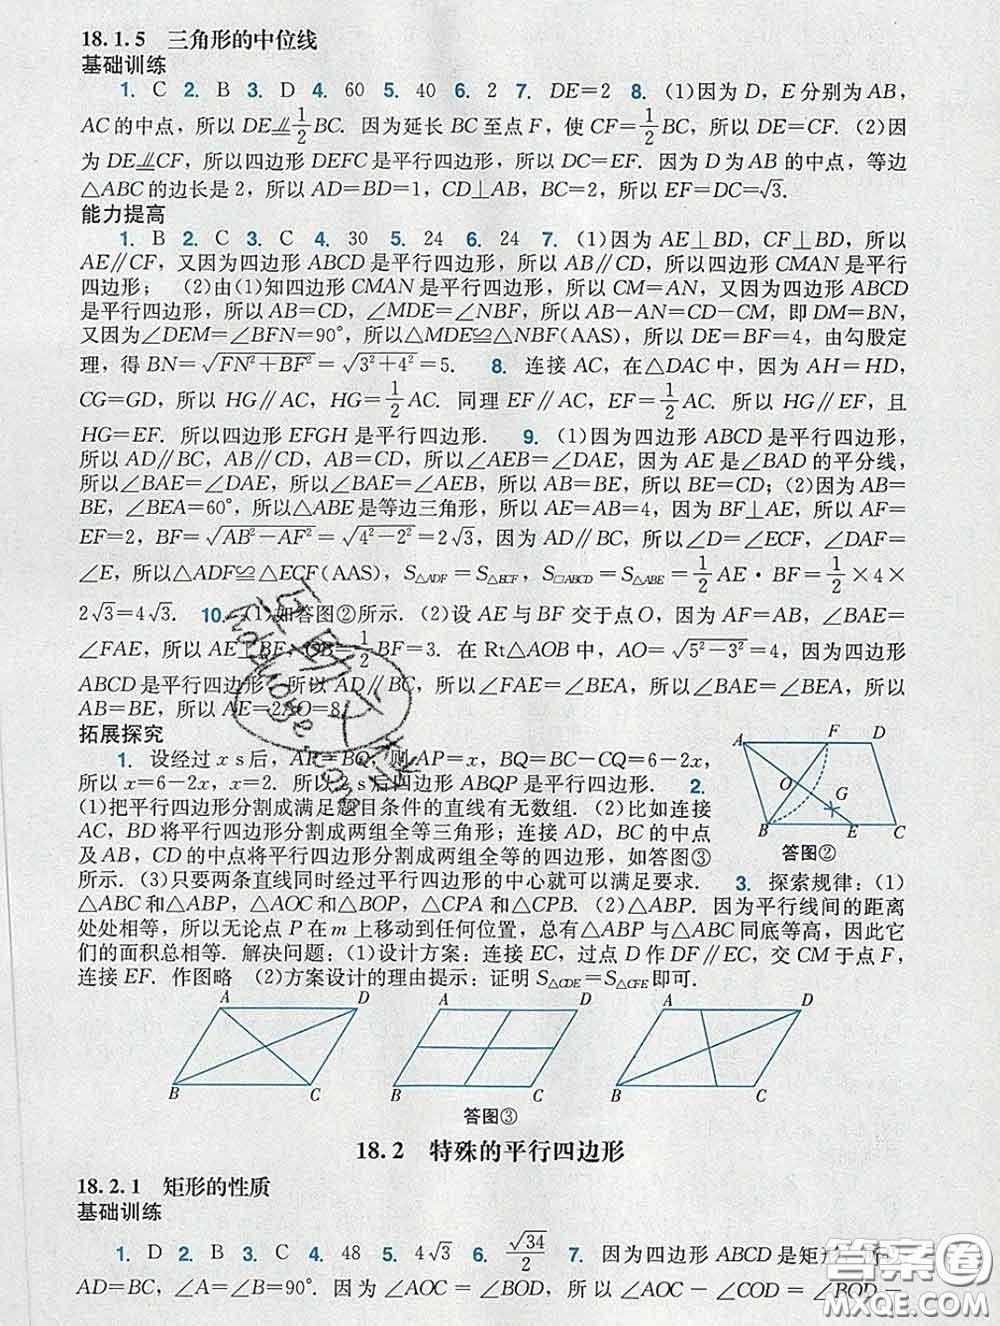 18.1.5 三角形的中位线
基础训练
1. C 2. B 3. D 4. 60 5. 40 6. 2 7. DE=2 8. (1)因为 D，E 分别为 AB，
AC 的中点，所以 DE⫽1/2BC. 因为延长 BC 至点 F，使 CF=1/2BC，所以 DE=CF. (2)因
为 DE⫽CF，所以四边形 DEFC 是平行四边形，所以 DC=EF. 因为 D 为 AB 的中点，等边
△ABC 的边长是 2，所以 AD=BD=1，CD⊥AB，BC=2，所以 EF=DC=√3.
能力提高
1. B 2. C 3. C 4. 30 5. 24 6. 24 7. (1)因为 AE⊥BD，CF⊥BD，所以
AE∥CF，又因为四边形 ABCD 是平行四边形，所以 AB∥CD，所以四边形 CMAN 是平行
四边形； (2)由(1)知四边形 CMAN 是平行四边形，所以 CM=AN，又因为四边形 ABCD
是平行四边形，所以 AB=CD，∠MDE=∠NBF，所以 AB-AN=CD-CM，即 DM=BN，
又因为∠DEM=∠BFN=90°，所以△MDE≌△NBF(AAS)，所以 DE=BF=4，由勾股定
理，得 BN=√(FN²+BF²)=√(3²+4²)=5. 8. 连接 AC，在△DAC 中，因为 AH=HD，
CG=GD，所以 HG∥AC，HG=1/2AC. 同理 EF∥AC，EF=1/2AC. 所以 HG∥EF，且
HG=EF. 所以四边形 EFGH 是平行四边形. 9. (1)因为四边形 ABCD 是平行四边形，
所以 AD∥BC，AB∥CD，AB=CD，所以∠AEB=∠DAE，因为 AE 是∠BAD 的平分线，
所以∠BAE=∠DAE，所以∠BAE=∠AEB，所以 AB=BE，所以 BE=CD；(2)因为 AB=
BE，∠BEA=60°，所以△ABE 是等边三角形，所以 AE=AB=4，因为 BF⊥AE，所以 AF=
EF=2，BF=√(AB²-AF²)=√(4²-2²)=2√3，因为 AD∥BC，所以∠D=∠ECF，∠DAF=
∠E，所以△ADF≌△ECF(AAS)，S△ADF=S△ECF，S□ABCD=S△ABE=1/2AE·BF=1/2×4×
2√3=4√3. 10. (1)如答图②所示. (2)设 AE 与 BF 交于点 O，因为 AF=AB，∠BAE=
∠FAE，所以 AE⊥BF，OB=1/2BF=3. 在 Rt△AOB 中，AO=√(5²-3²)=4，因为四边形
ABCD 是平行四边形，所以 AD∥BC，所以∠FAE=∠BEA，所以∠BAE=∠BEA，所以
AB=BE，所以 AE=2AO=8.
拓展探究
1. 设经过 x s 后，AP=BQ，则 AP=x，BQ=BC-CQ=6-2x，
所以 x=6-2x，x=2. 所以 2 s 后四边形 ABQP 是平行四边形. 2.
(1)把平行四边形分割成满足题目条件的直线有无数组. (2)比如连接
AC，BD 将平行四边形分割成两组全等三角形；连接 AD，BC 的中点
及 AB，CD 的中点将平行四边形分割成两组全等的四边形，如答图③
所示. (3)只要两条直线同时经过平行四边形的中心就可以满足要求. 3. 探索规律：(1)
△ABC 和△ABP，△AOC 和△BOP，△CPA 和△CPB. (2)△ABP. 因为平行线间的距离
处处相等，所以无论点 P 在 m 上移动到任何位置，总有△ABP 与△ABC 同底等高，因此它
们的面积总相等. 解决问题：(1)设计方案：连接 EC，过点 D 作 DF∥EC，交 CM 于点 F，
连接 EF. 作图略 (2)方案设计的理由提示：证明 S△CDE=S△CFE即可.
A F D
O G
B E C
答图②
A D A D A D
B C B C B C
答图③
18.2 特殊的平行四边形
18.2.1 矩形的性质
基础训练
1. D 2. B 3. C 4. 48 5. 4√3 6. √34/2 7. 因为四边形 ABCD 是矩形，所
AD=BC，∠A=∠B=90°. 因为∠AOC=∠BOD，所以∠AOC-∠COD=∠BOD-
答案圈
MXQE.COM